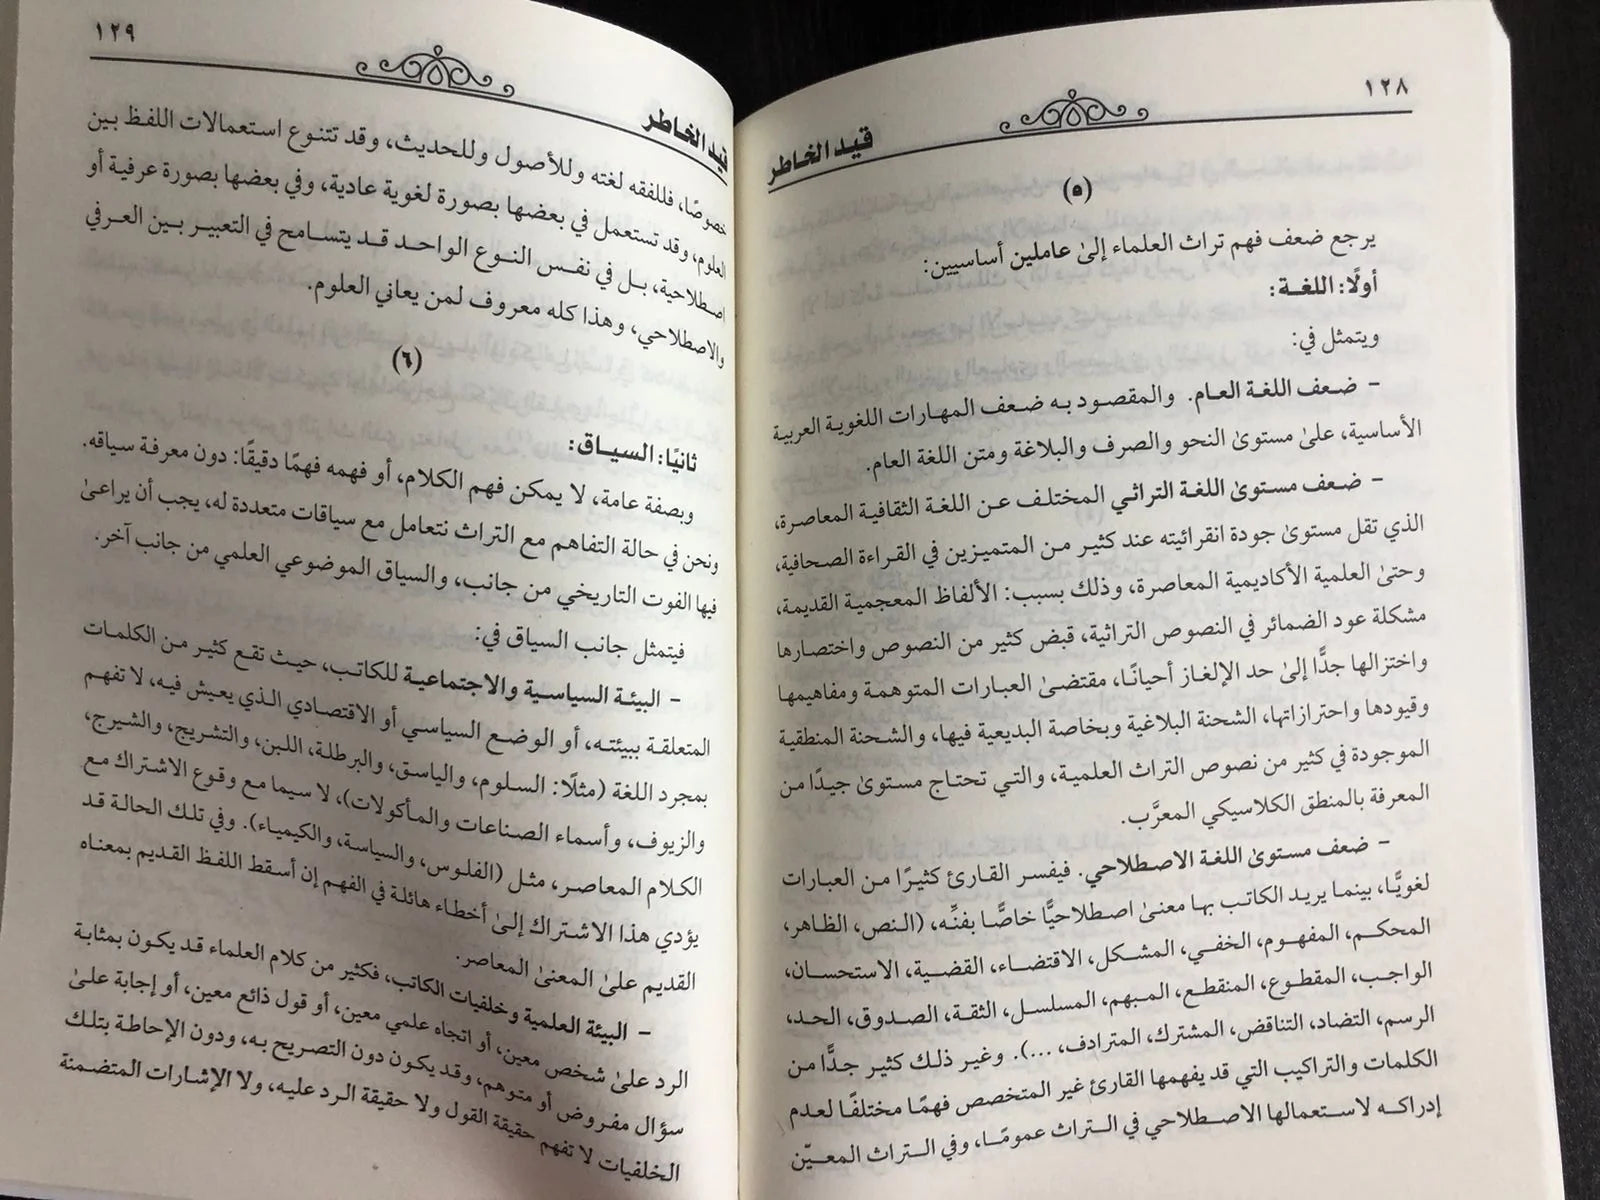 ١٢٨
قيد الخاطر
(٥)
يرجع ضعف فهم تراث العلماء إلىٰ عاملين أساسيين:
أولًا: اللغة:
ويتمثل في:
- ضعف اللغة العام. والمقصود به ضعف المهارات اللغوية العربية
الأساسية، علىٰ مستوىٰ النحو والصرف والبلاغة ومتن اللغة العام.
- ضعف مستوىٰ اللغة التراثي المختلف عن اللغة الثقافية المعاصرة،
الذي تقل مستوىٰ جودة انقرائيته عند كثير من المتميزين في القراءة الصحافية،
وحتىٰ العلمية الأكاديمية المعاصرة، وذلك بسبب: الألفاظ المعجمية القديمة،
مشكلة عود الضمائر في النصوص التراثية، قبض كثير من النصوص واختصارها
واختزالها جدًّا إلىٰ حد الإلغاز أحيانًا، مقتضىٰ العبارات المتوهمة ومفاهيمها
وقيودها واحترازاتها، الشحنة البلاغية وبخاصة البديعية فيها، والشحنة المنطقية
الموجودة في كثير من نصوص التراث العلمية، والتي تحتاج مستوىٰ جيدًا من
المعرفة بالمنطق الكلاسيكي المعرَّب.
- ضعف مستوىٰ اللغة الاصطلاحي. فيفسر القارئ كثيرًا من العبارات
لغويًّا، بينما يريد الكاتب بها معنىٰ اصطلاحيًّا خاصًّا بفنِّه، (النص، الظاهر،
المحكم، المفهوم، الخفي، المشكل، الاقتضاء، القضية، الاستحسان،
الواجب، المقطوع، المنقطع، المبهم، المسلسل، الثقة، الصدوق، الحد،
الرسم، التضاد، التناقض، المشترك، المترادف، ...). وغير ذلك كثير جدًّا من
الكلمات والتراكيب التي قد يفهمها القارئ غير المتخصص فهمًا مختلفًا لعدم
إدراكه لاستعمالها الاصطلاحي في التراث عمومًا، وفي التراث المعيّن
١٢٩
قيد الخاطر
خصوصًا، فللفقه لغته وللأصول وللحديث، وقد تتنوع استعمالات اللفظ بين
العلوم، وقد تستعمل في بعضها بصورة لغوية عادية، وفي بعضها بصورة عرفية أو
اصطلاحية، بل في نفس النوع الواحد قد يتسامح في التعبير بين العرفي
والاصطلاحي، وهذا كله معروف لمن يعاني العلوم.
(٦)
ثانيًا: السياق:
وبصفة عامة، لا يمكن فهم الكلام، أو فهمه فهمًا دقيقًا: دون معرفة سياقه.
ونحن في حالة التفاهم مع التراث نتعامل مع سياقات متعددة له، يجب أن يراعىٰ
فيها الفوت التاريخي من جانب، والسياق الموضوعي العلمي من جانب آخر.
فيتمثل جانب السياق في:
- البيئة السياسية والاجتماعية للكاتب، حيث تقع كثير من الكلمات
المتعلقة ببيئته، أو الوضع السياسي أو الاقتصادي الذي يعيش فيه، لا تفهم
بمجرد اللغة (مثلًا: السلوم، والياسق، والبرطلة، اللبن، والتشريج، والشيرج،
والزيوف، وأسماء الصناعات والمأكولات)، لا سيما مع وقوع الاشتراك مع
الكلام المعاصر، مثل (الفلوس، والسياسة، والكيمياء). وفي تلك الحالة قد
يؤدي هذا الاشتراك إلىٰ أخطاء هائلة في الفهم إن أسقط اللفظ القديم بمعناه
القديم علىٰ المعنىٰ المعاصر.
- البيئة العلمية وخلفيات الكاتب، فكثير من كلام العلماء قد يكون بمثابة
الرد علىٰ شخص معين، أو اتجاه علمي معين، أو قول ذائع معين، أو إجابة علىٰ
سؤال مفروض أو متوهم، وقد يكون دون التصريح به، ودون الإحاطة بتلك
الخلفيات لا تفهم حقيقة القول ولا حقيقة الرد عليه، ولا الإشارات المتضمنة